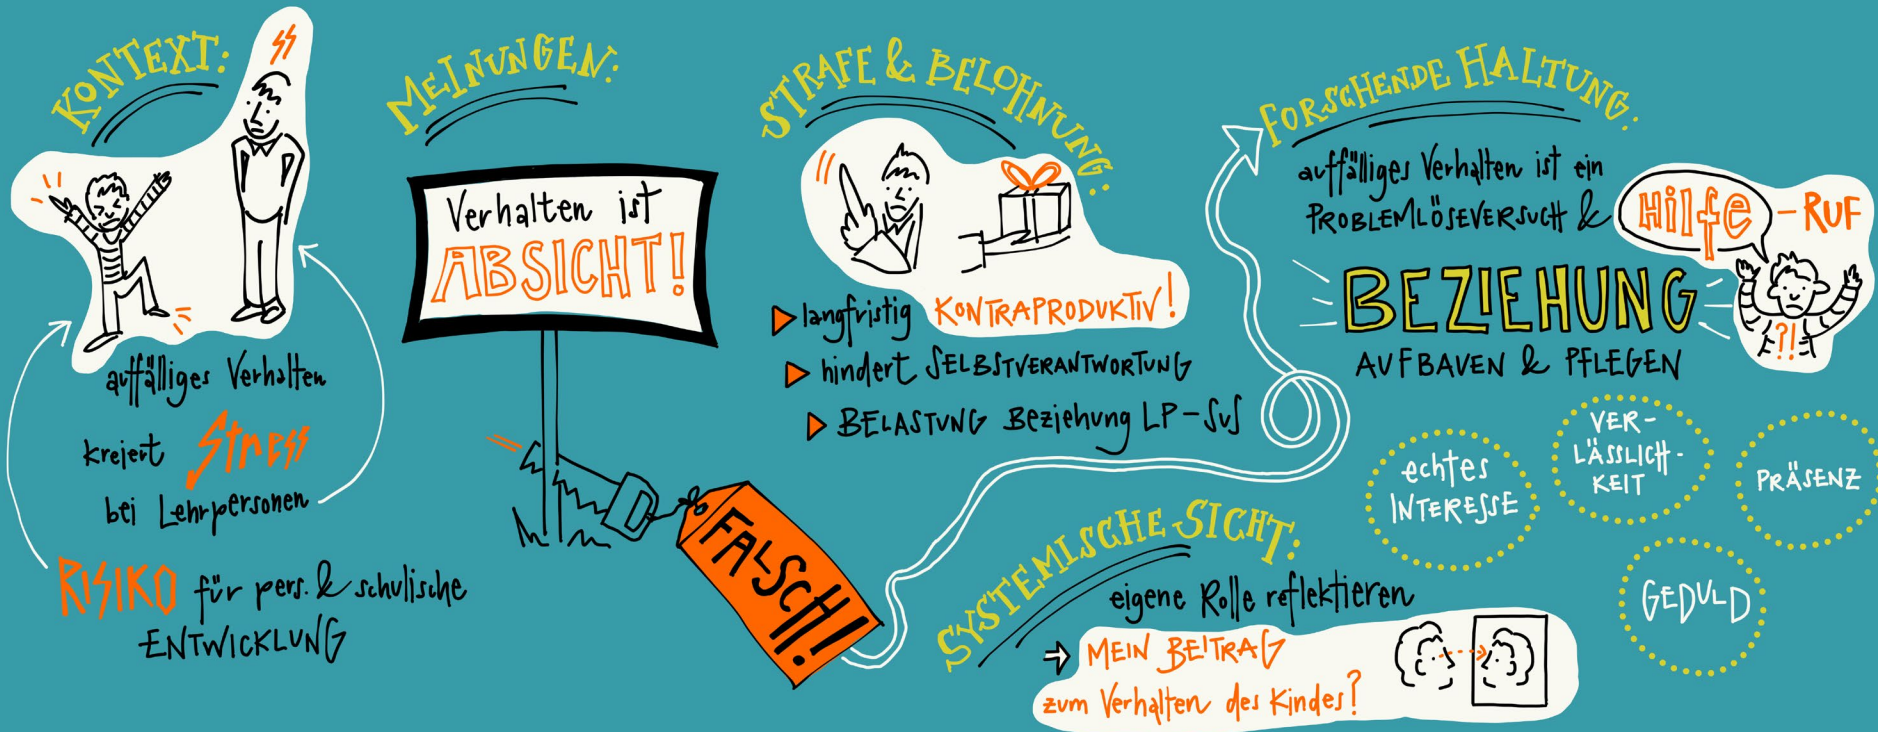 KONTEXT:
auffälliges Verhalten
kreiert Stress
bei Lehrpersonen
RISIKO für pers. & schulische
ENTWICKLUNG
MEINUNGEN:
Verhalten ist
ABSICHT!
FALSCH!
STRAFE & BELOHNUNG:
langfristig KONTRAPRODUKTIV!
hindert SELBSTVERANTWORTUNG
BELASTUNG Beziehung LP-SuS
SYSTEMISCHE SICHT:
eigene Rolle reflektieren
→ MEIN BEITRAG
zum Verhalten des Kindes?
FORSCHENDE HALTUNG:
auffälliges Verhalten ist ein
PROBLEMLÖSEVERSUCH & Hilfe-RUF
BEZIEHUNG
AUFBAUEN & PFLEGEN
?!
echtes
INTERESSE
VER-
LÄSSLICH-
KEIT
PRÄSENZ
GEDULD